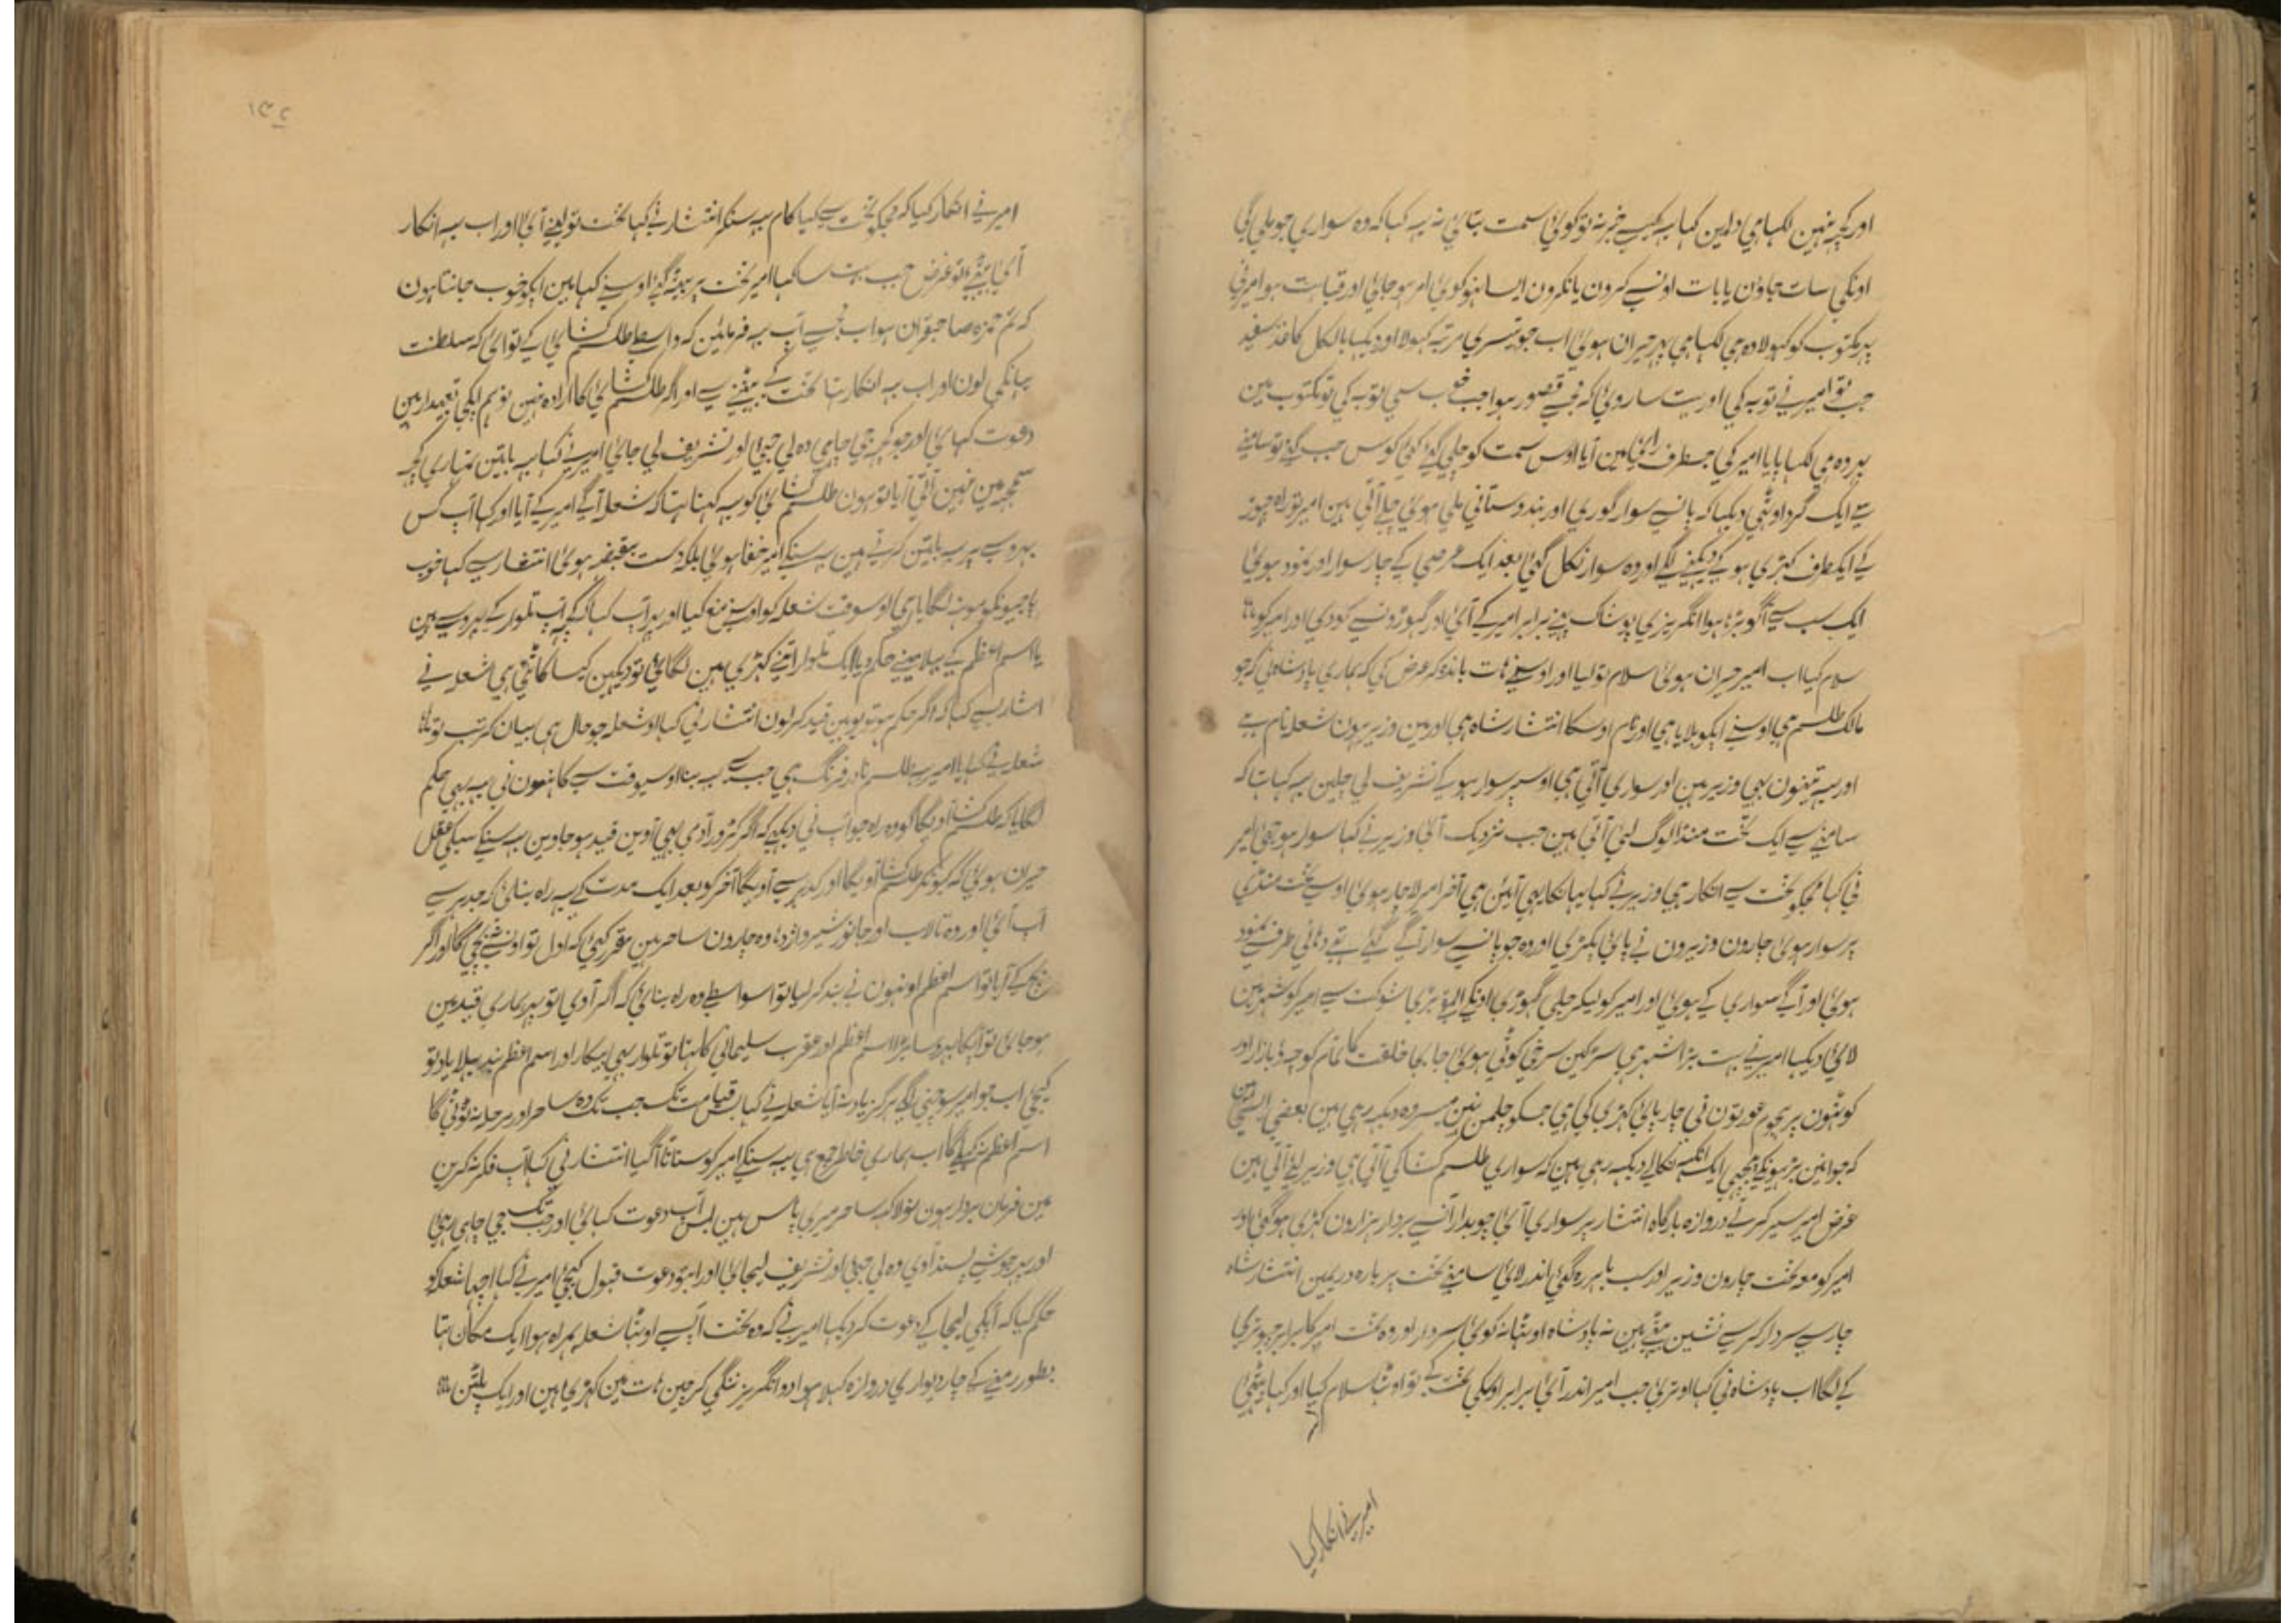 اور کچہ نہین لکہا ہی دلمین کہا یہ کیسے خبر نہ تو کوئی سمت بتائی نہ یہ کہا کہ وہ سواری جو ملی گی
اونکی سات جاؤن یا بات اونسے کرون یا نکرون ایسا نہو کوئی امر ہو جائی اور قباحت ہو امیرنی
پہر مکتوب کو کہولا وہ ہی لکہا ہی پہر حیران ہوئی اب جو تیسری مرتبہ کہولا اور دیکہا بالکل کاغذ سفید
جب تو امیرنے توبہ کی اور بہت سا روئی کہ مجہسے قصور ہوا جب سچی توبہ کی تو مکتوب مین
پہر وہ ہی لکہا پایا امیر کی جسطرف رائی مین آیا اوس سمت کو چلی گئے کئی کوس جب گئے تو سامنے
سے ایک گرد اوٹہی دیکہا کہ پانسے سوار گوری اور ہندوستانی ملی ہوئی چلے آتی ہین امیر تو راہ چہوڑ
کے ایکطرف کہڑی ہوکے دیکہنے لگے اور وہ سوار نکل گئی بعد ایک عرصے کے چار سوار اور نمود ہوئی
ایک سب سے آگو بڑہا ہوا انگریزی پوشاک پہنے برابر امیر کے آئی اور گہوڑونسے کودی اور امیر کو
سلام کیا اب امیر حیران ہوئی سلام تو لیا اور اوسنے ہات باندہ کر عرض کی کہ ہماری پادشاہ نی کہ جو
مالک طلسم ہی اوسنے آپکو بلایا ہی اور نام اوسکا انتشار شاہ ہی اور مین وزیر ہون شعلہ نام ہے
اور یہ تینون بہی وزیر ہین اور سواری آتی ہی اوسپر سوار ہوکے تشریف لی چلین یہ کہا تہا کہ
سامنے سے ایک تخت منڈا لوگ لئی آتی ہین جب نزدیک آئی وزیر نے کہا سوار ہو جئی امیر
نی کہا مجکو تخت سے انکار ہی وزیر نے کہا یہانکا یہی آئین ہی آخر امیر لاچار ہوئی اوسے تخت منڈی
پر سوار ہوئی چارون وزیرون نے پائی پکڑی اور وہ جو پانسے سوار آگے گئے تہے دہانی طرف سے نمود
ہوئی اور آگے سواری کے ہوئی اور امیر کو لیکر چلی گہوڑی اونکے بڑی شوکت سے امیر کو شہر مین
لائی دیکہا امیر نے بہت بڑا شہر ہی سڑکین سرخی کوٹی ہوئی جا بجا خلقت کا تمام کوچہ و بازار اور
کوٹہون پر ہجوم عورتون نی چارپائی کہڑی کی ہی جسکو چلمن نہین میسر وہ دیکہ رہی ہین بعضی ایسی ہین
کہ جوانین پڑہونکے پیچہی ایک آنکہہ نکالے دیکہ رہی ہین کہ سواری طلسم کشا کی آتی ہی وزیر لیئے آتی ہین
غرض امیر سیر کرتے دروازہ بارگاہ انتشار پر سواری آئی چوبدار آسے بردار ہزارون کہڑی ہو گئی اور
امیر کو معہ تخت چارون وزیر اور سب باہر رہ گئی اندر لائی سامنے تخت پر بارہ دری مین انتشار شاہ
چار سے سردار کرسے نشین بیٹہے ہین نہ پادشاہ اوٹہا نہ کوئی سردار اور وہ تخت امیر کا برابر چبوتری
کے لگا اب پادشاہ نی کہا اوتری جب امیر اندر آئی برابر اوسکی تخت کے تو اوٹہا سلام کیا اور کہا بیٹہئی
امیرنے انکار کیا
۱۳۲
امیرنے انکار کیا کہ مجکو تخت سے کیا کام یہ سنکر انتشار نے کہا تخت تو لینے آئی اور اب یہ انکار
آئی بیٹہئے تو غرض جب بہت سا کہا امیر تخت پر بیٹہ گئے اوسنے کہا مین آپکو خوب جانتا ہون
کہ تم حمزہ صاحبقران ہو اب مجہسے آپ یہ فرمائین کہ واسطے طلسم کشائی کے تو آئی کہ سلطنت
یہانکی لون اور اب یہ انکار تہا تخت کے بیٹہنے سے اور اگر طلسم کشائی کا ارادہ نہین تو ہم آپکی تعہدار ہین
دعوت کہائی اور جو کچہ جی چاہی وہ لی جئی اور تشریف لی جائی امیرنے کہا یہ باتین تمہاری کچہ
سمجہہ مین نہین آتی آیا تو ہون طلسم کشائی کو یہ کہنا تہا کہ شعلہ آگے امیر کے آیا اور کہا آپ کس
بہروسے پر یہ باتین کرتے ہین یہ سنکے امیر خفا ہوئی بلکہ دست بقبضہ ہوئی انتشار سے کہا خوب
پاجیونکو مونہہ لگایا ہی اوسوقت شعلہ کو اوسنے منع کیا اور پہر آپ کہا کہ کچہ آپ تلوار کے بہروسے ہین
یا اسم اعظم کے پہلا مینے حکم دیا ایک تلوار اپنے کہڑی مین لگائی تو دیکہین کیسا کاٹتی ہی شعلہ نے
اشارہسے کہا کہ اگر حکم ہو تو یوہین قید کر لون انتشار نی کہا او شعلہ جو حال ہی بیان کر تب تو
شعلہ نے کہا یا امیر یہ طلسم نادر فرنگ ہی جب سے یہ بنا اوسیوقت سے کاہنون نی یہ بہی حکم
لگایا کہ طلسم کشا آویگا گو وہ راہ جو آپ نی دیکہی کہ اگر کڑور آدمی بہی آوین قید ہو جاوین یہ سنکے سبکی عقل
حیران ہوئی کہ کیونکر طلسم کشا آویگا اور کدہر سے آویگا آخر کو بعد ایک مدت کے یہ راہ بنائی کہ جدہر سے
آپ آئی اور وہ تالاب اور جانور شیر و اژدہا وہ چارون ساحر ہین مقرر کیئی کہ اول تو اونسے نہ بچی گا اور اگر
بچ کے آیا تو اسم اعظم اونہون نے بند کر لیا تو اسواسطے وہ راہ بنائی کہ اگر آوی تو پہر ہماری قید مین
ہو جائی تو آپکا بہروسا بڑا اسم اعظم اور عقرب سلیمانی کا تہا تو تلوار بہی بیکار اور اسم اعظم بند پہلا یاد تو
کیجئی اب جو امیر سوچنی لگے ہرگز یاد نہ آیا شعلہ نے کہا بس قیامت تک جب تک وہ ساحر اور مرحلہ نہ ٹوٹی گا
اسم اعظم نہ کہلے گا اب ہماری خاطر جمع ہی یہ سنکے امیر کو سناٹا آگیا انتشار نی کہا آپ فکر نہ کرین
مین فرمان بردار ہون نو لاکہہ ساحر میری پاس ہین بس آپ دعوت کہائی اور جب تک جی چاہی رہئی
اور پہر جو شے پسند آوی وہ لی جئی اور تشریف لیجائی اور ابتو دعوت قبول کیجئی امیرنے کہا اچہا شعلہ کو
حکم کیا کہ آپکی لیجا کے دعوت کر دیکہا امیر نے کہ وہ تخت آپسے اوٹہا شعلہ ہمراہ ہوا ایک مکان تہا
بطور رمنے کے چار دیواری دروازہ کہلا ہوا دو انگریز ننگی کرچین ہات مین کہڑی ہین اور ایک پلٹن